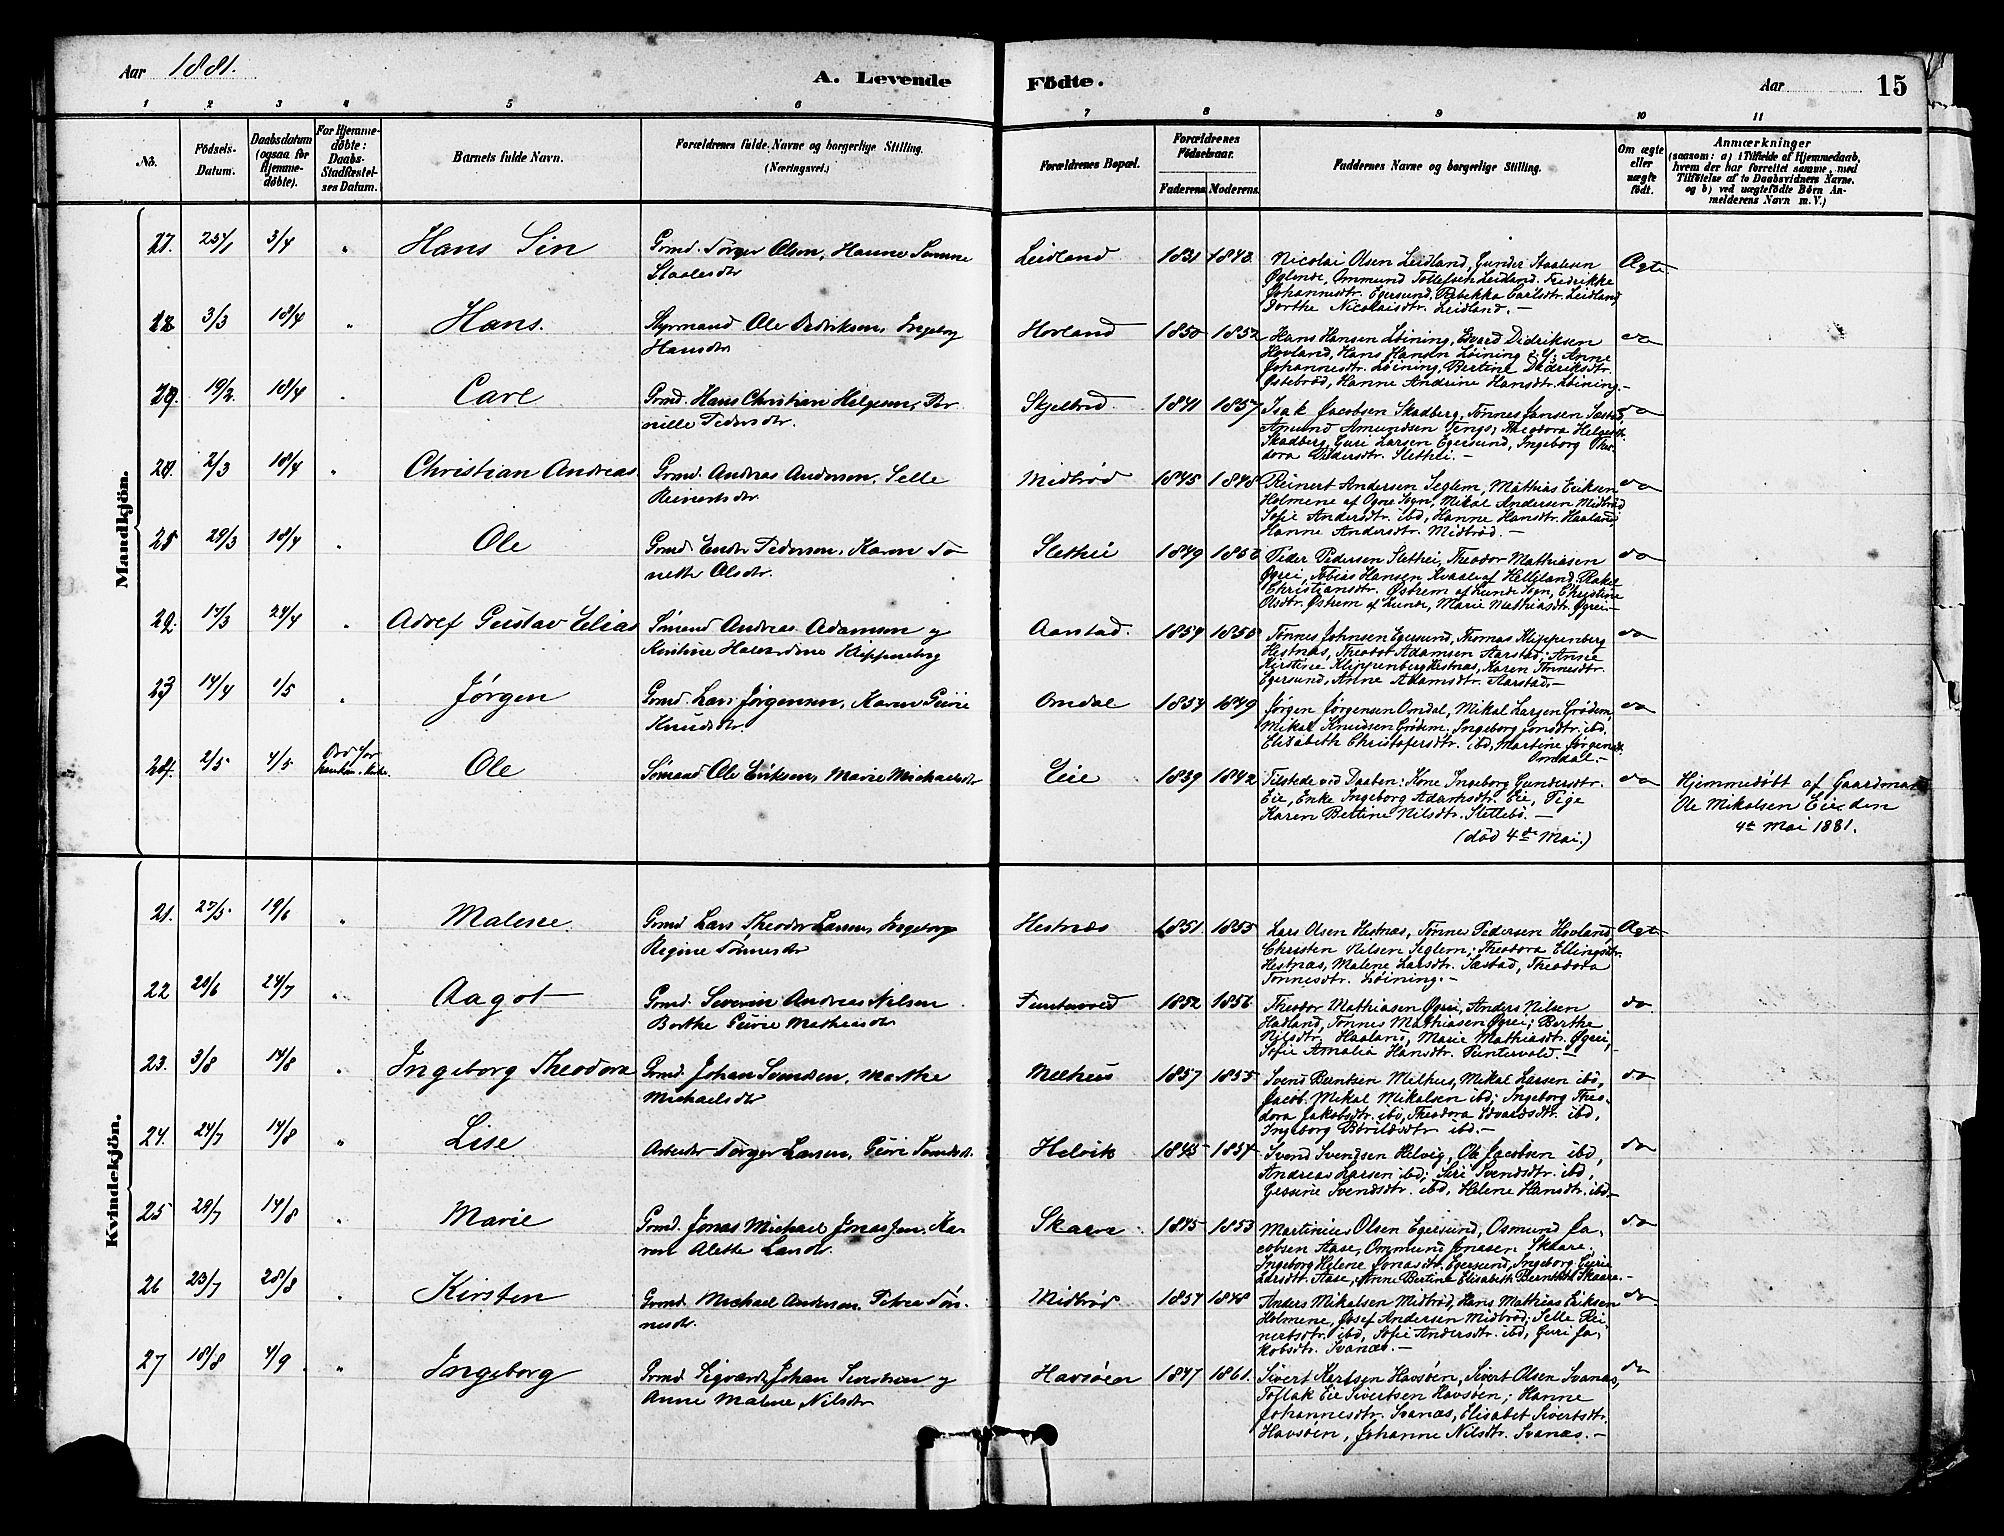 Aar 1881.
A. Levende Fødte.
Aar
15
1 2 3 4 5 6 7 8 9 10 11
No.
Fødsels-Datum.
Daabsdatum (ogsaa for Hjemme-døbte).
For Hjemme-døbte: Daabs-Stadfæstel-ses Datum.
Barnets fulde Navn.
Forældrenes fulde Navne og borgerlige Stilling.
(Næringsvei.)
Forældrenes Bopæl.
Forældrenes Fødselsaar.
Faderens. Moderens.
Faddernes Navne og borgerlige Stilling.
Om ægte eller uægte født.
Anmærkninger
(saasom: a) i Tilfælde af Hjemmedaab, hvem der har forrettet samme, med Tilføielse af to Daabsvidners Navne, og b) ved uægtefødte Børn Anmelderens Navn m. V.)
Mandkjön.
3/4 " Hans
Grmd. Tørger Olsen, Hanne
Staalesdtr
Leidland 1831 1843
Nicolai Olsen Leidland, Gunder Staalesen
Ommund Tollefsen Leidland, Fredrikke
Johannesdtr. Egersund, Rebekka Carlsdtr. Leidland
Dorthe Nicolaisdtr. Leidland.—
Ægte
3/3 18/4 " Hans.
Styrmand Ole Didriksen, Ingeborg
Hansdtr
Hovland 1850 1852
Hans Hansen Løining, Edvard Didriksen
Hovland, Hans Hansen Løining, Anne
Johannesdtr. Løining, Bertine Didriksdtr.
Østebrød, Hanne Andrine Hansdtr. Løining.—
do
19/2 18/4 Carl
Grmd. Hans Christian Helgesen, Per
nille Pedersdtr.
Skjelbred 1841 1857
Isak Jacobsen Skadberg, Tønnes Jansen Sæstad
Amund Amundsen Tengs; Theodora Helgesdtr.
Skadberg, Guri Larsen Egersund, Ingeborg Theo
dora Pedersdtr. Slethei.—
do
2/3 18/4 " Christian Andreas
Grmd. Andreas Andersen, Selle
Reinertsdtr
Midbrød 1845 1848
Reinert Andersen Seglem, Mathias Eriksen
Holmene af Ogne Sogn, Mikal Andersen Midbrød
Sofie Andersdtr. ibd, Hanne Hansdtr. Haaland
Hanne Andersdtr. Midbrød.—
do
29/3 18/4 Ole
Grmd. Endre Pedersen, Karen To
nette Olsdtr.
Slethei 1849
Peder Pedersen Slethei, Theodor Mathiasen
Øgrei, Tobias Hansen Kvaale af Helleland; Rakel
Christiansdtr. Østrem af Lunde Sogn, Christine
Olsdtr. Østrem af Lunde, Marie Mathiasdtr. Øgrei—
do
17/3 24/4 Adolf Gustav Elias
Sømand Andreas Adamsen og
Klippenberg
Aarstad.
Tønnes Johnsen Egersund, Thomas Klippenberg
Hestnæs, Theodor Adamsen Aarstad; Anne
Kirstine Klippenberg Hestnæs, Karen Tønnesdtr.
Egersund, Anne Adamsdtr. Aarstad.—
do
23 14/4 1/5 Jørgen
Grmd. Lars Jørgensen, Karen Gurie
Knudsdtr.
Omdal 1849
Jørgen Jørgensen Omdal, Mikal Larsen Grødem
Mikal Knudsen Grødem, Ingeborg Jonsdtr. ibd.
Elisabeth Christofersdtr. ibd, Martine Jørgensdtr
Omdal.—
do
24. 2/5 4/5 Ole
Sømand Ole Eriksen, Marie Michaelsdtr
Eie 1839 1842
Tilstede ved Daaben: Kone Ingeborg Gundersdtr.
Eie, Enke Ingeborg Adamsdtr. Eie, Pige
Karen Bertine Nilsdtr. Slettebø.—
(død 4de Mai.)
do
Hjemmedøbt af Gaardmand
Ole Mikalsen Eie den
4de Mai 1881.
Kvindekjön.
21. 27/5 19/6 " Malene
Grmd Lars Theodor Larsen, Ingeborg
Regine Tønnesdtr
Hestnæs 1851 1855
Lars Olsen Hestnæs, Tønnes Pedersen Hovland,
Christen Nilsen Seglem; Theodora Ellingsdtr.
Hestnæs, Malene Larsdtr. Sæstad, Theodora
Tønnesdtr. Løining.—
Ægte
22 20/6 24/7 " Aagot
Grmd. Severin Andreas Nilsen
Berthe Gurie Mathiasdtr
Puntervold 1852 1856
Theodor Mathiasen Øgrei, Anders Nilsen
Hadland, Tønnes Mathiasen Øgrei; Berthe
Nilsdtr. Haaland, Marie Mathiasdtr. Øgrei,
Sofie Amalia Hansdtr. Puntervold.—
do
23. 3/8 14/8 " Ingeborg Theodora
Grmd. Johan Svendsen, Marthe
Michaelsdtr
Melhus 1857 1855
Svend Berntsen Melhus, Mikal Larsen ibd,
Jacob Mikal Mikalsen ibd; Ingeborg Theo-
dora Jakobsdtr. ibd, Theodora Edvardsdtr. ibd,
Ingeborg Børildsdtr ibd.—
do
24. 24/7 14/8 " Lise
Arbeider Tørger Larsen, Guri Svendsdtr.
Helvik 1845 1854
Svend Svendsen Helvig, Ole Jacobsen ibd,
Andreas Larsen ibd; Siri Svendsdtr. ibd,
Gessine Svendsdtr. ibd, Helene Hansdtr. ibd—
do
25 14/8 " Marie
Grmd. Jonas Michael Jonassen, Ka-
ren Alette Larsdtr.
Skaara 1845 1853
Martinius Olsen Egersund, Osmund Ja-
cobsen Aase, Ommund Jonasen Skaare;
Ingeborg Helene Jonasdtr. Egersund, Ingeborg Gurie
Larsdtr. Aase, Anne Bertine Elisabeth Berntsdtr Skaara.—
do
26 23/7 28/8 " Kirsten
Grmd. Michael Andersen, Petrea Tøn-
nesdtr.
Midbrød 1848
Anders Mikalsen Midbrød, Hans Mathias Eriksen
Holmene, Josef Andersen Midbrød; Selle Rei-
nertsdtr. ibd, Sofie Andersdtr. ibd, Guri Ja-
kobsdtr. Svanæs.—
do
27 18/8 4/9 " Ingeborg
Grmd. Sigvard Johan Sivertsen og
Anne Malene Nilsdtr
Havsøen 1847 1861.
Sivert Karlsen Havsøen, Sivert Olsen Svanæs,
Tollak Eie Sivertsen Havsøen; Hanne
Johannesdtr. Svanæs, Elisabet Sivertsdtr.
Havsøen, Johanne Nilsdtr. Svanæs.—
do